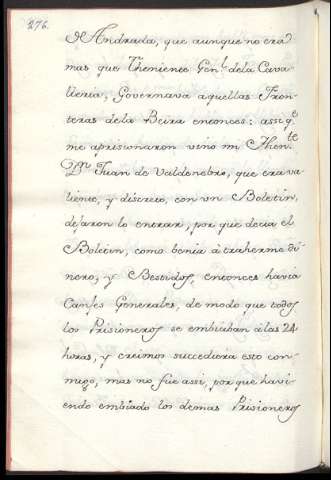 276.
D'Andrada, que aunque no era
mas que Theniente Gen.l de la Cava-
lleria, Governava aquellas Fron-
teras de la Beira entonces: assi q.e
me aprisionaron vino mi Then.te
D.n Juan de Valdenebro, que era va-
liente, y discreto, con vn Boletin,
dejaron lo entrar, por que decia el
Boletin, como benia à traherme di-
nero, y Bestidos, entonces havia
Canjes Generales, de modo que todos
los Prisioneros se embiaban à las 24
horas, y creimos succediera esto con-
migo, mas no fue assi, por que havi-
endo embiado los demas Prisioneros